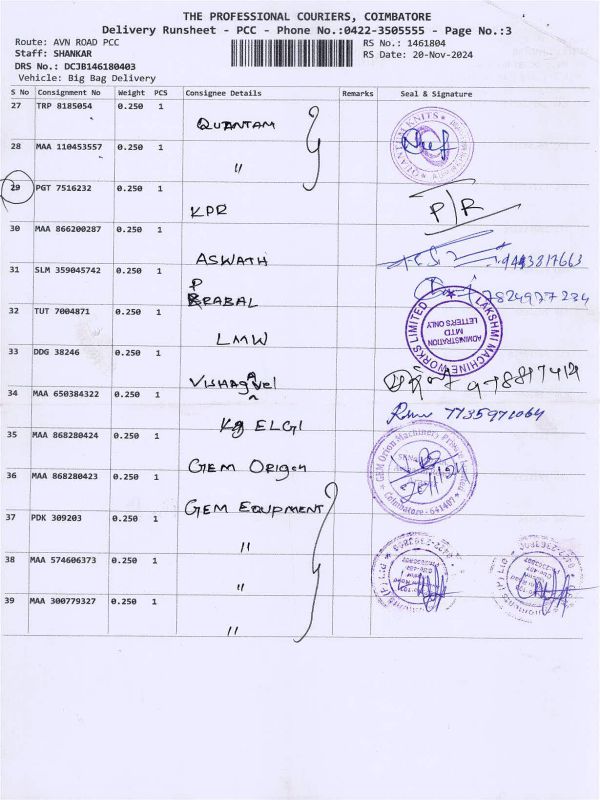 THE PROFESSIONAL COURIERS, COIMBATORE
Delivery Runsheet - PCC - Phone No.:0422-3505555 - Page No.:3
Route: AVN ROAD PCC RS No.: 1461804
Staff: SHANKAR RS Date: 20-Nov-2024
DRS No.: DCJB146180403
Vehicle: Big Bag Delivery
S No Consignment No Weight PCS Consignee Details Remarks Seal & Signature
27 TRP 8185054 0.250 1 QUANTAM QUANTUM KNITS
28 MAA 110453557 0.250 1 "
29 PGT 7516232 0.250 1 KPR P/R
30 MAA 866200287 0.250 1 ASWATH 9443817663
31 SLM 359045742 0.250 1 PRABAL 7824977234
32 TUT 7004871 0.250 1 LMW LAKSHMI MACHINE WORKS LIMITED ADMINISTRATION MTD LETTERS ONLY
33 DDG 38246 0.250 1
34 MAA 650384322 0.250 1 ELGI
35 MAA 868280424 0.250 1 GEM Origen GEM Orion Machinery Coimbatore - 641407
36 MAA 868280423 0.250 1 GEM EQUPMENT
37 PDK 309203 0.250 1 "
38 MAA 574606373 0.250 1 "
39 MAA 300779327 0.250 1 "